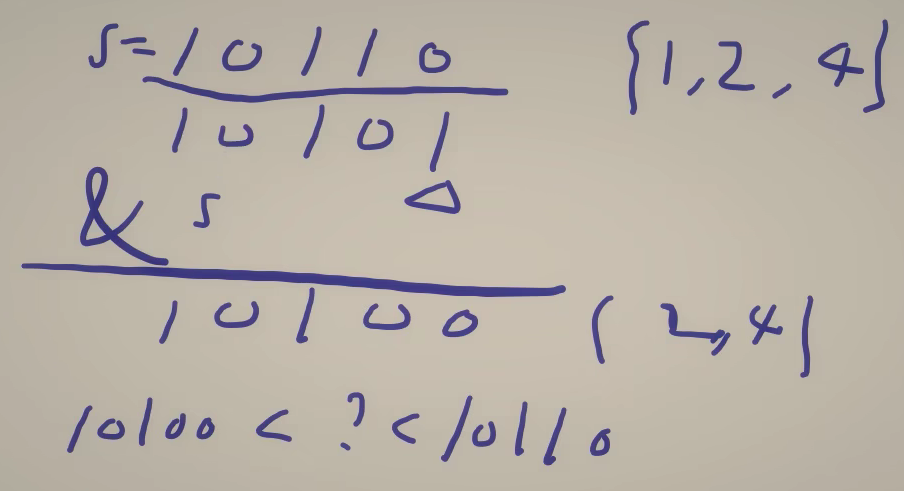 S = 10110 {1,2,4}
10101
& S △
10100 {2,4}
10100 < ? < 10110